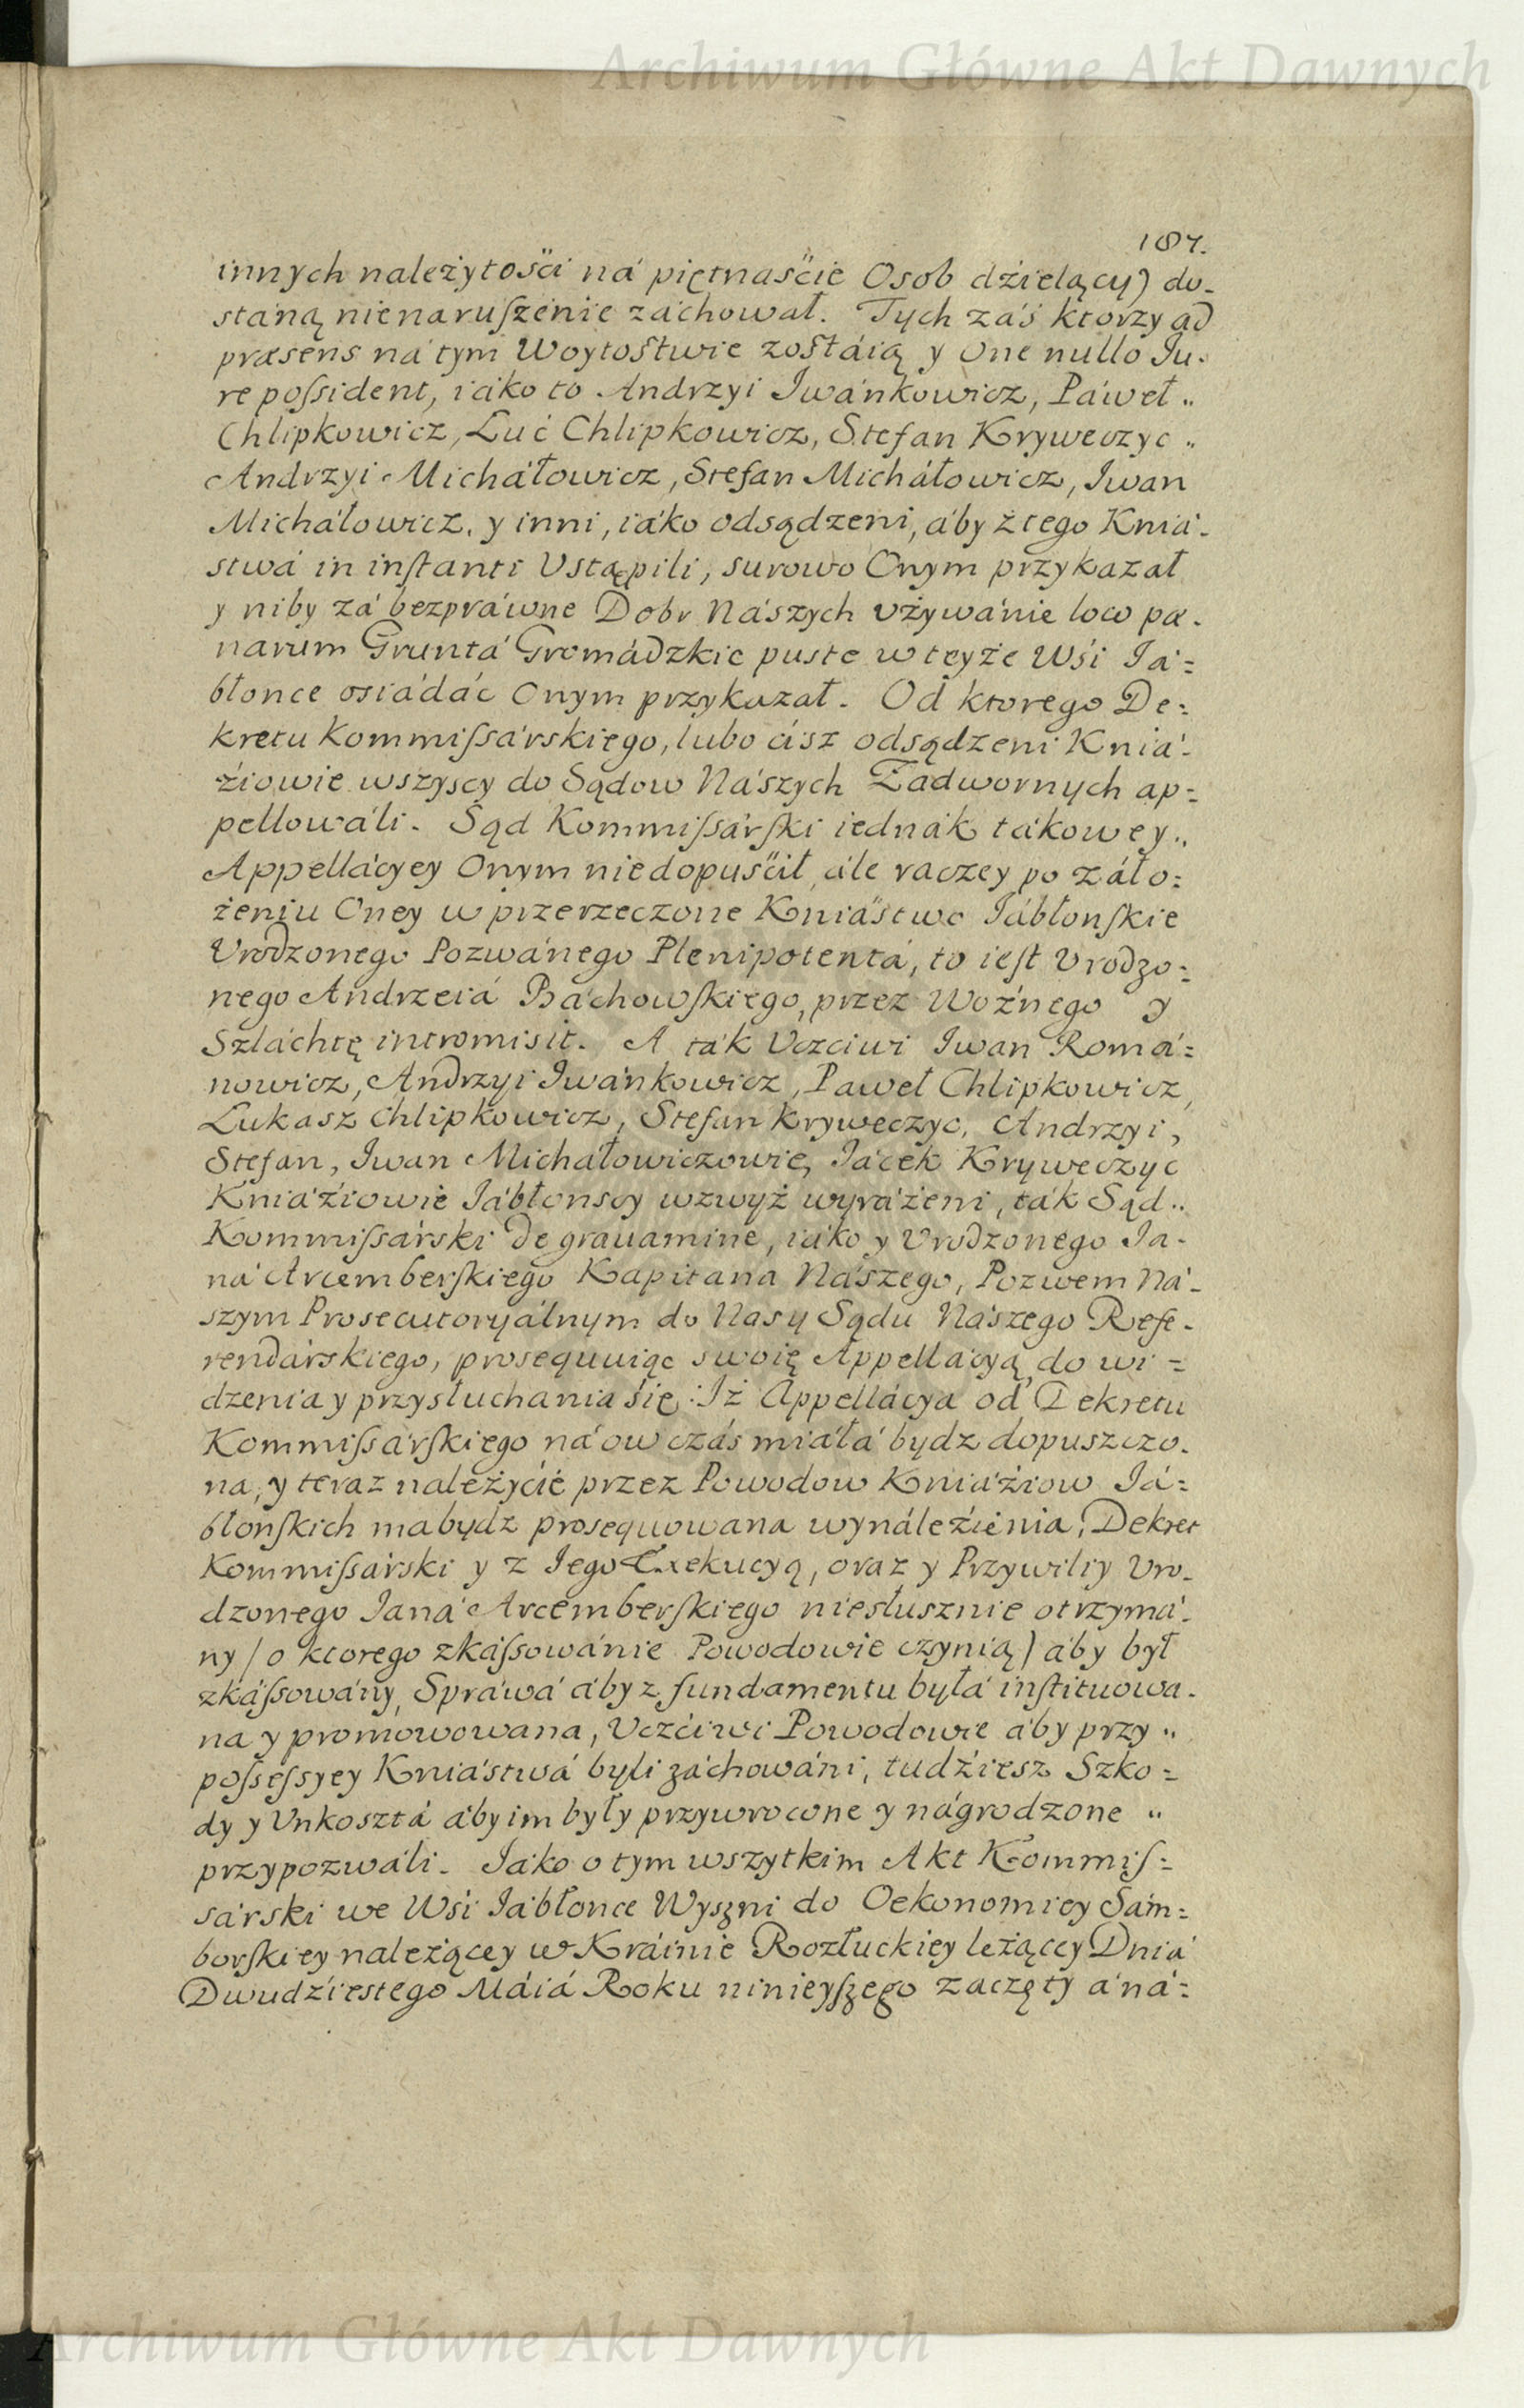 Archiwum Główne Akt Dawnych
187.
innych należytości ná piętnaście Osob dźielący) do-
stáną nienaruſzenie záchował. Tych záś ktorzy ad
præsens ná tym Woytoſtwie zoſtáią y One nullo Ju-
re poſsident, iáko to Andrzyi Jwánkowicz, Páweł
Chlipkowicz, Luć Chlipkowicz, Stefan Kryweczyc
Andrzyi Michálowicz, Stefan Michálowicz, Jwan
Michálowicz, y inni, iáko odsądzeni, áby z tego Kniá-
stwá in inſtanti Vstąpili, surowo Onym przykazał
y niby zá bezpráwne Dobr Nászych vżywánie loco pæ-
narum Gruntá Gromádzkie puste w teyże Wśi Já=
błonce osiádáć Onym przykazał. Od ktorego De=
kretu Kommiſsárskiego, lubo ćisz odsądzeni Kniá=
źiowie wszyscy do Sądow Nászych Zadwornych ap=
pellowáli. Sąd Kommiſsárſki iednák tákowey
Appellácyey Onym niedopuśćił, ále raczey po záło=
żeniu Oney w przerzeczone Kniáśtwo Jábłonſkie
Vrodzonego Pozwánego Plenipotentá, to ieſt Vrodzo=
nego Andrzeiá Báchowſkiego, przez Woźnego y
Szláchtę intromisit. A ták Vczciwi Jwan Romá=
nowicz, Andrzyi Jwánkowicz, Paweł Chlipkowicz,
Lukasz Chlipkowicz, Stefan Kryweczyc, Andrzyi,
Stefan, Jwan Michałowiczowie, Jácek Kryweczyc
Kniáźiowie Jábłonscy wzwyż wyráżeni, ták Sąd
Kommiſsárski de grauamine, iáko y Vrodzonego Ja-
ná Arcemberſkiego Kapitana Nászego, Pozwem Ná-
szym Prosecutoryálnym do Nas y Sądu Nászego Refe-
rendárskiego, prosequuiąc swoię Appellácyą do wi=
dzenia y przysłuchania śię: Jż Appellácya od Dekretu
Kommiſsárſkiego ná ow czás miáłá bydz dopuszczo-
na, y teraz należyćie przez Powodow Kniáźiow Já=
błonſkich ma bydz prosequowana wynáleźienia, Dekret
Kommiſsárski y z Jego Exekucyą, oraz y Przywiliy Vro-
dzonego Janá Arcemberſkiego niesłusznie otrzymá-
ny (o ktorego zkáſsowánie Powodowie czynią) áby był
zkáſsowány, Spráwá áby z fundamentu byłá inſtituowa-
na y promowowana, Vczćiwi Powodowie áby przy
poſseſsyey Kniástwá byli záchowáni, tudźiesz Szko=
dy y Vnkosztá áby im były przywrocone y nágrodzone
przypozwáli. Jáko o tym wszytkim Akt Kommiſ=
sárski we Wśi Jábłonce Wyszni do Oekonomiey Sám=
borſkiey należącey w Kráinie Rozłuckiey leżącey Dniá
Dwudźiestego Máiá Roku ninieyſzego zaczęty á ná=
Archiwum Główne Akt Dawnych